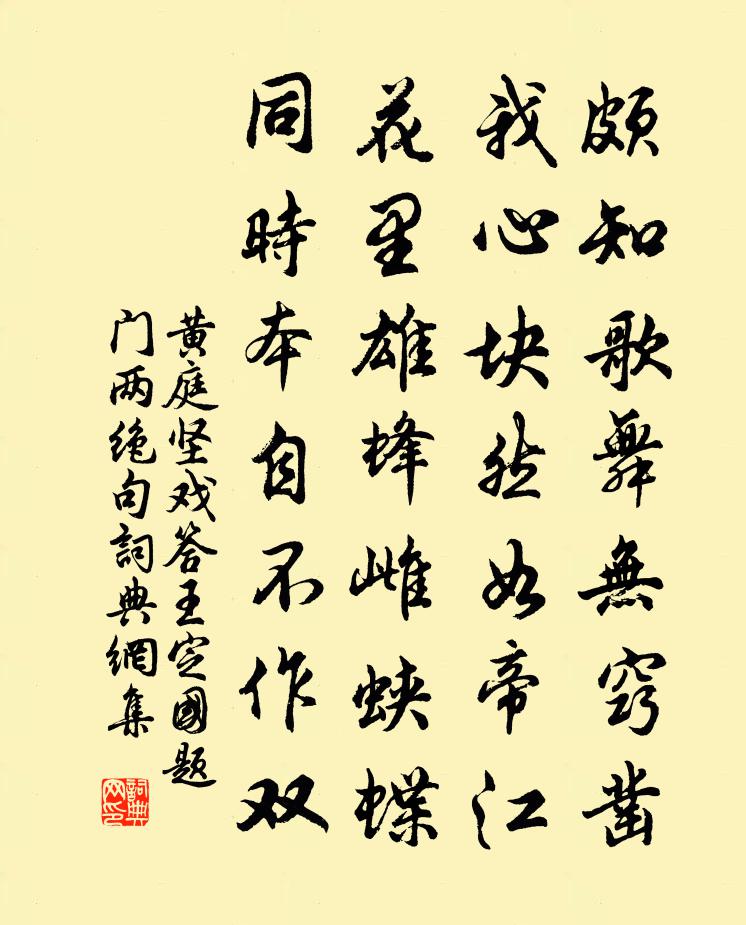 颇知歌舞無窍凿
我心块然如帝江
花里雄蜂雌蛱蝶
同時本自不作双
黄庭坚戏答王定國题
门两绝句詞典網集
詞典网印